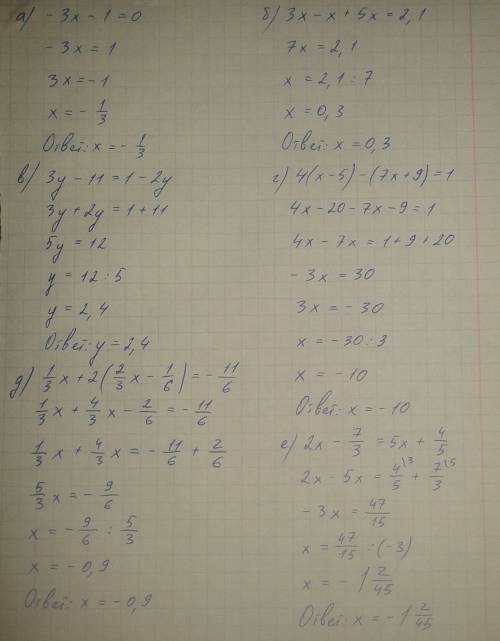 а) - 3x - 1 = 0
- 3x = 1
3x = -1
x = - 1/3
Ответ: x = - 1/3
б) 3x - x + 5x = 2,1
7x = 2,1
x = 2,1 : 7
x = 0,3
Ответ: x = 0,3
в) 3y - 11 = 1 - 2y
3y + 2y = 1 + 11
5y = 12
y = 12 : 5
y = 2,4
Ответ: y = 2,4
г) 4(x - 5) - (7x + 9) = 1
4x - 20 - 7x - 9 = 1
4x - 7x = 1 + 9 + 20
- 3x = 30
3x = - 30
x = - 30 : 3
x = - 10
Ответ: x = - 10
д) 1/3 x + 2(2/3 x - 1/6) = - 11/6
1/3 x + 4/3 x - 2/6 = - 11/6
1/3 x + 4/3 x = - 11/6 + 2/6
5/3 x = - 9/6
x = - 9/6 : 5/3
x = - 0,9
Ответ: x = - 0,9
е) 2x - 7/3 = 5x + 4/5
2x - 5x = 4/5 \3 + 7/3 \5
- 3x = 47/15
x = 47/15 : (-3)
x = - 1 2/45
Ответ: x = - 1 2/45